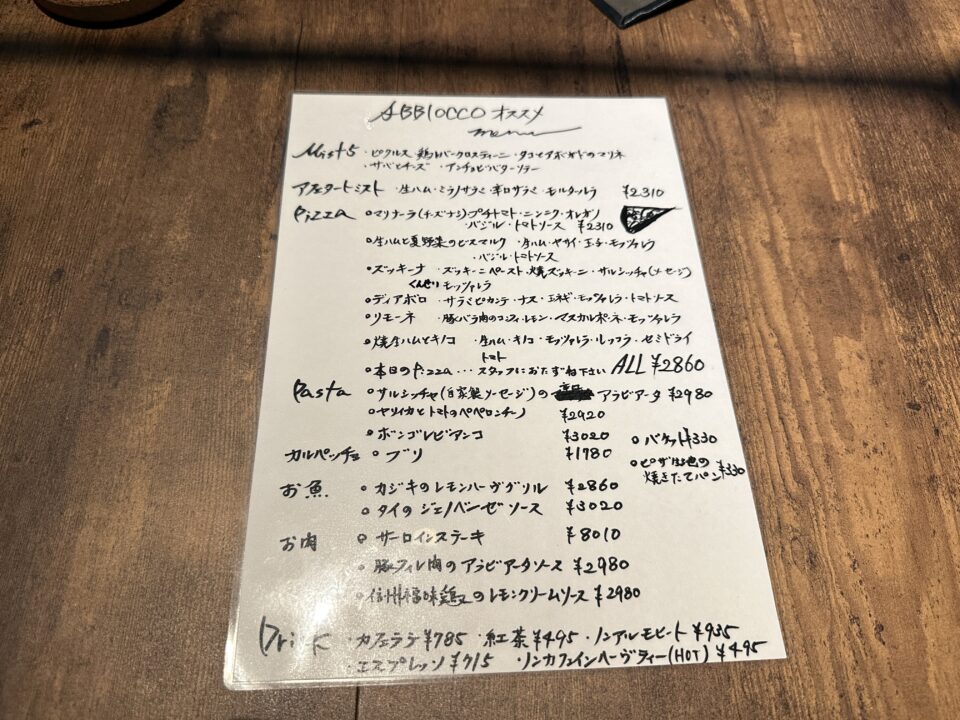 ABBIOCCO オススメ
menu
Mist5 ・ピクルス 鶏レバークロスティーニ ・タコとアボカドのマリネ
・サバとチーズ ・アンチョビバターソテー
アフェタートミスト ・生ハム・ミラノサラミ・辛口サラミ・モルタデルラ ¥2310
Pizza ○マリナーラ(チーズナシ)プチトマト・ニンニク・オレガノ
バジル・トマトソース ¥2310
○生ハムと夏野菜のビスマルク ・生ハム・ヤサイ・玉子・モッツァレラ
・バジル・トマトソース
○ズッキーナ ズッキーニペースト・焼ズッキーニ・サルシッチャ(ソセージ)
くんせいモッツァレラ
○ディアボロ ・サラミピカンテ・ナス・玉ネギ・モッツァレラ・トマトソース
○リモーネ ・豚バラ肉のコンフィ・レモン・マスカルポーネ・モッツァレラ
○焼生ハムとキノコ ・生ハム・キノコ・モッツァレラ・ルッコラ・セミドライ
トマト
○本日のPizza・・・スタッフにおたずね下さい ALL ¥2860
Pasta ○サルシッチャ(自家製ソーセージ)の 辛口 アラビアータ ¥2980
○ヤリイカとトマトのペペロンチーノ ¥2920
○ボンゴレビアンコ ¥3020
○バケット¥330
カルパッチョ ○ブリ ¥1780
○ピザ生地の
焼きたてパン ¥330
お魚 ○カジキのレモンハーブグリル ¥2860
○タイのジェノベーゼソース ¥3020
お肉 ○サーロインステーキ ¥8010
○豚フィレ肉のアラビアータソース ¥2980
○信州福味鶏のレモンクリームソース ¥2980
Drink ・カフェラテ¥785 ・紅茶¥495 ・ノンアルモヒート¥935
・エスプレッソ¥715 ・ノンカフェインハーブティー(HOT) ¥495